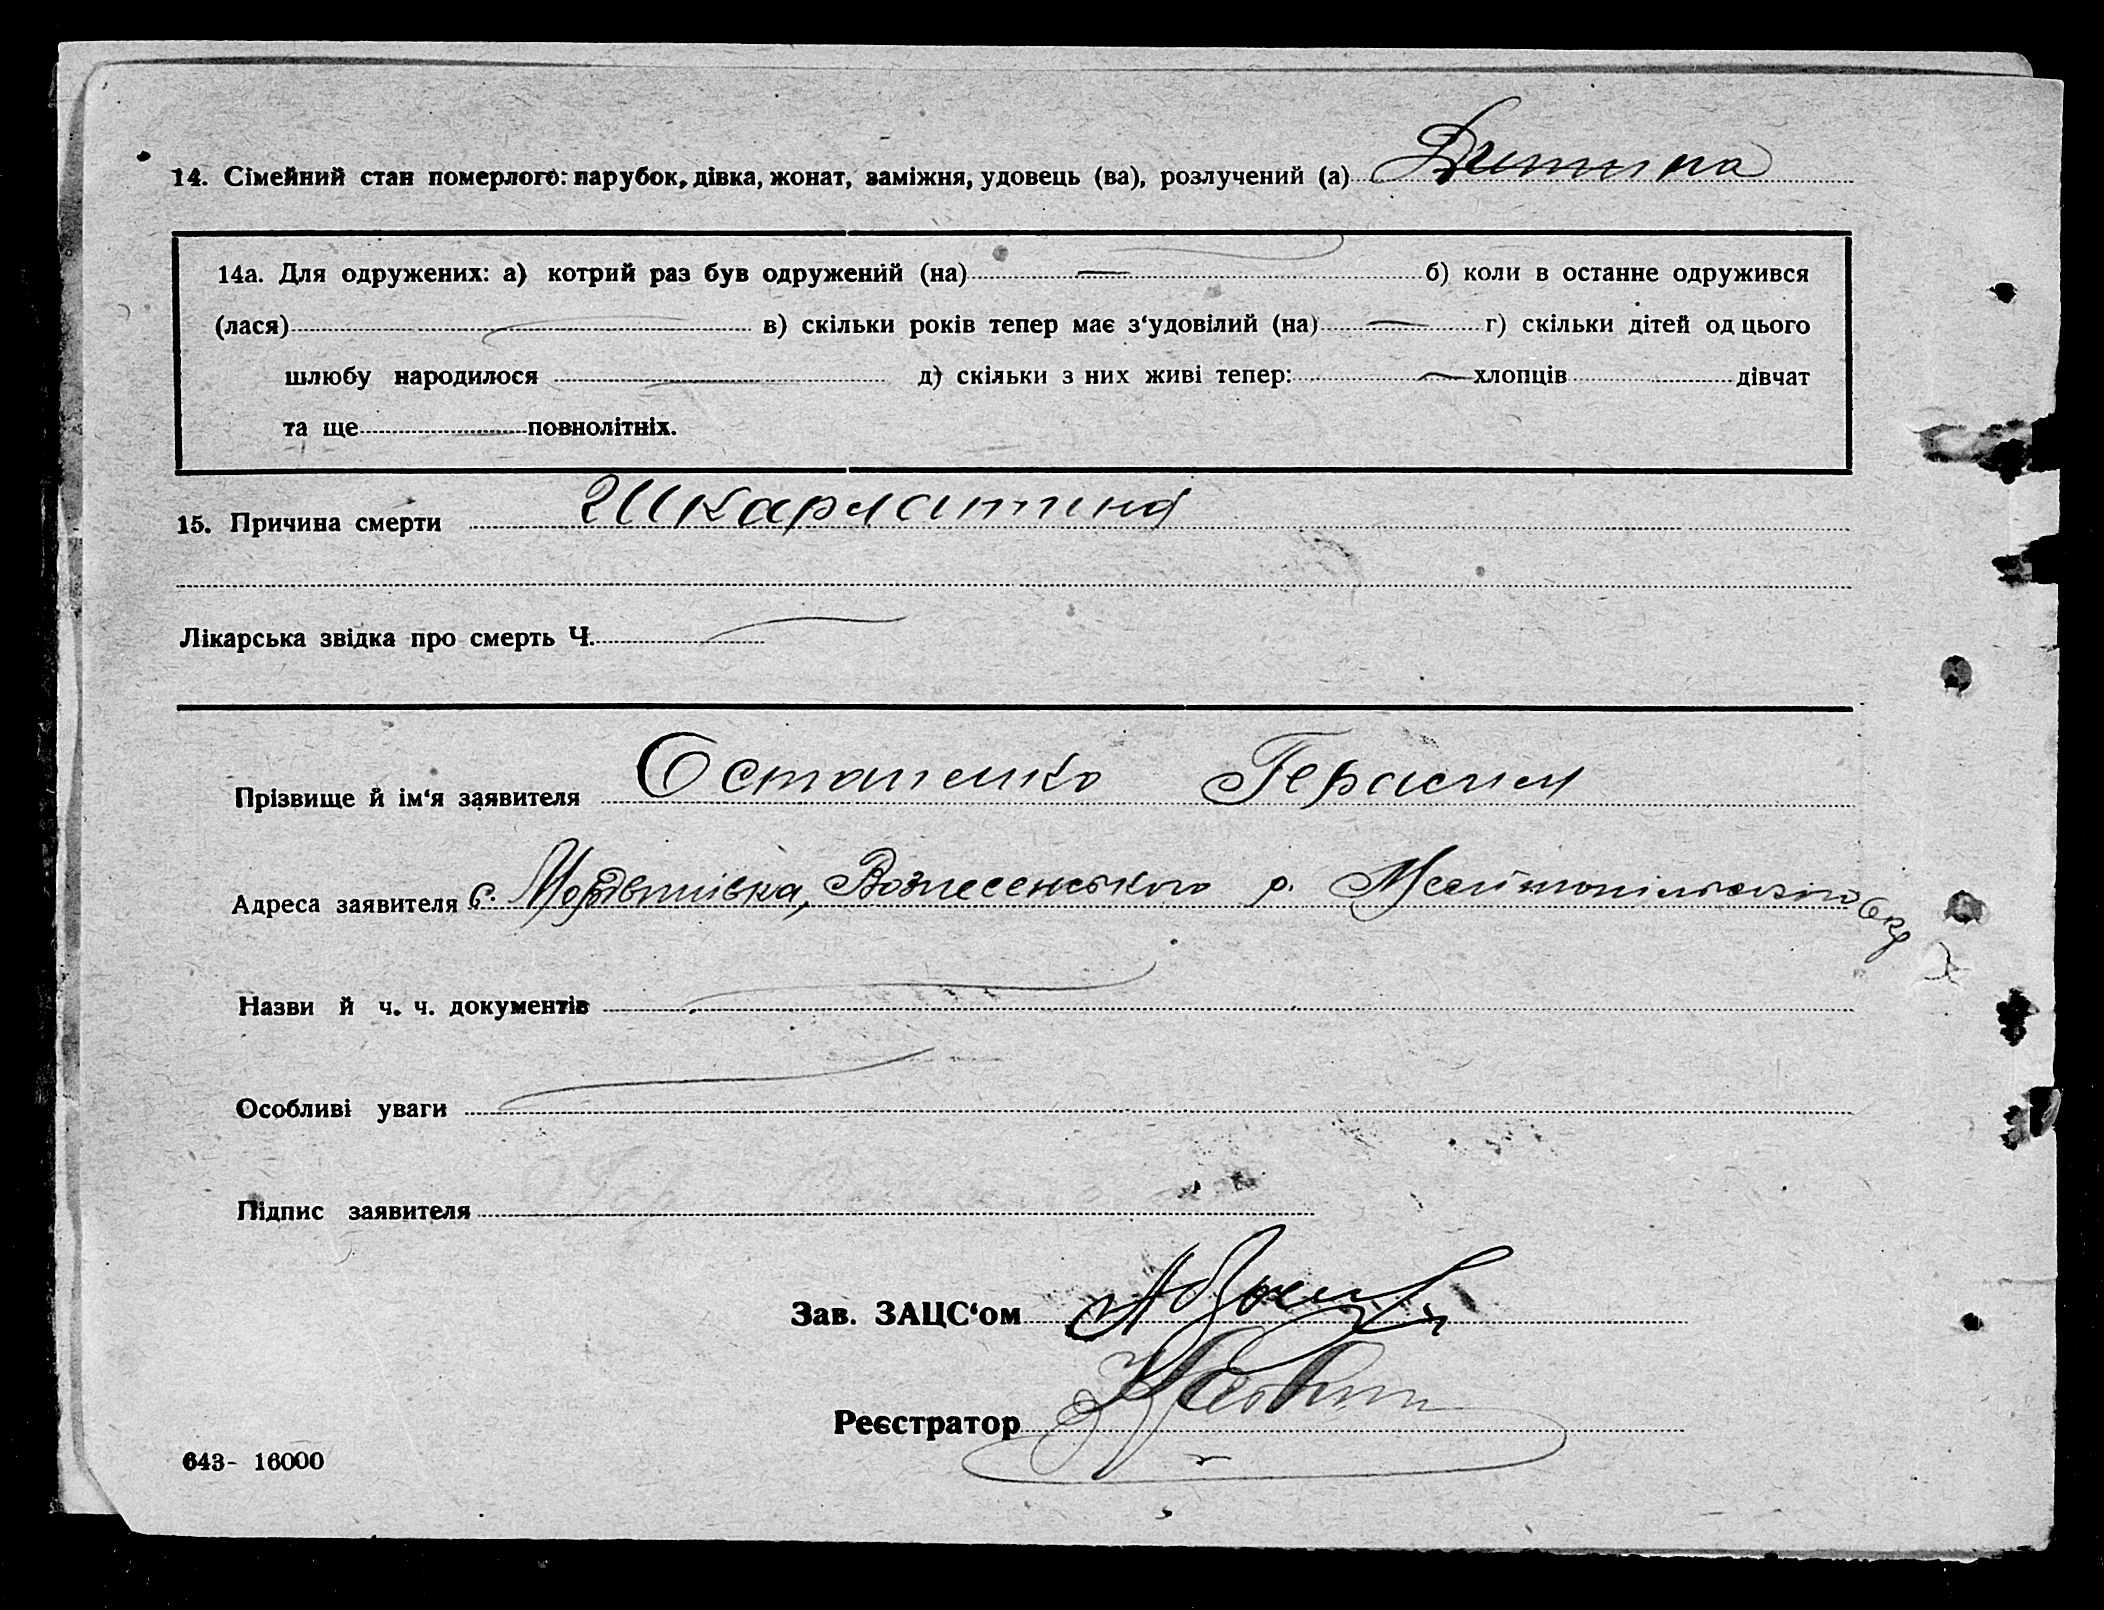 14. Сімейний стан померлого: парубок, дівка, жонат, заміжня, удовець (ва), розлучений (а) Дитина
14а. Для одружених: а) котрий раз був одружений (на) — б) коли в останне одружився
(лася) — в) скільки років тепер має з‘удовілий (на) — г) скільки дітей од цього
шлюбу народилося — д) скільки з них живі тепер: — хлопців дівчат
та ще повнолітніх.
15. Причина смерти Шкарлатина
Лікарська звідка про смерть Ч. —
Прізвище й ім‘я заявителя Остапенко Герасим
Адреса заявителя с. Мордвинівка, Вознесенського р. Мелітопільського Окр
Назви й ч. ч. документів —
Особливі уваги —
Підпис заявителя
Зав. ЗАЦС‘ом
Реєстратор
643- 16000